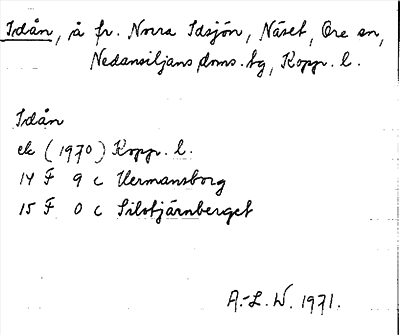 Idån, å fr. Norra Idsjön, Näset, Ore sn,
Nedansiljans doms. tg, Kopp. l.
Idån
ek (1970) Kopp. l.
14 F 9 c Hermansborg
15 F 0 c Silstjärnberget
A.-L. W. 1971.